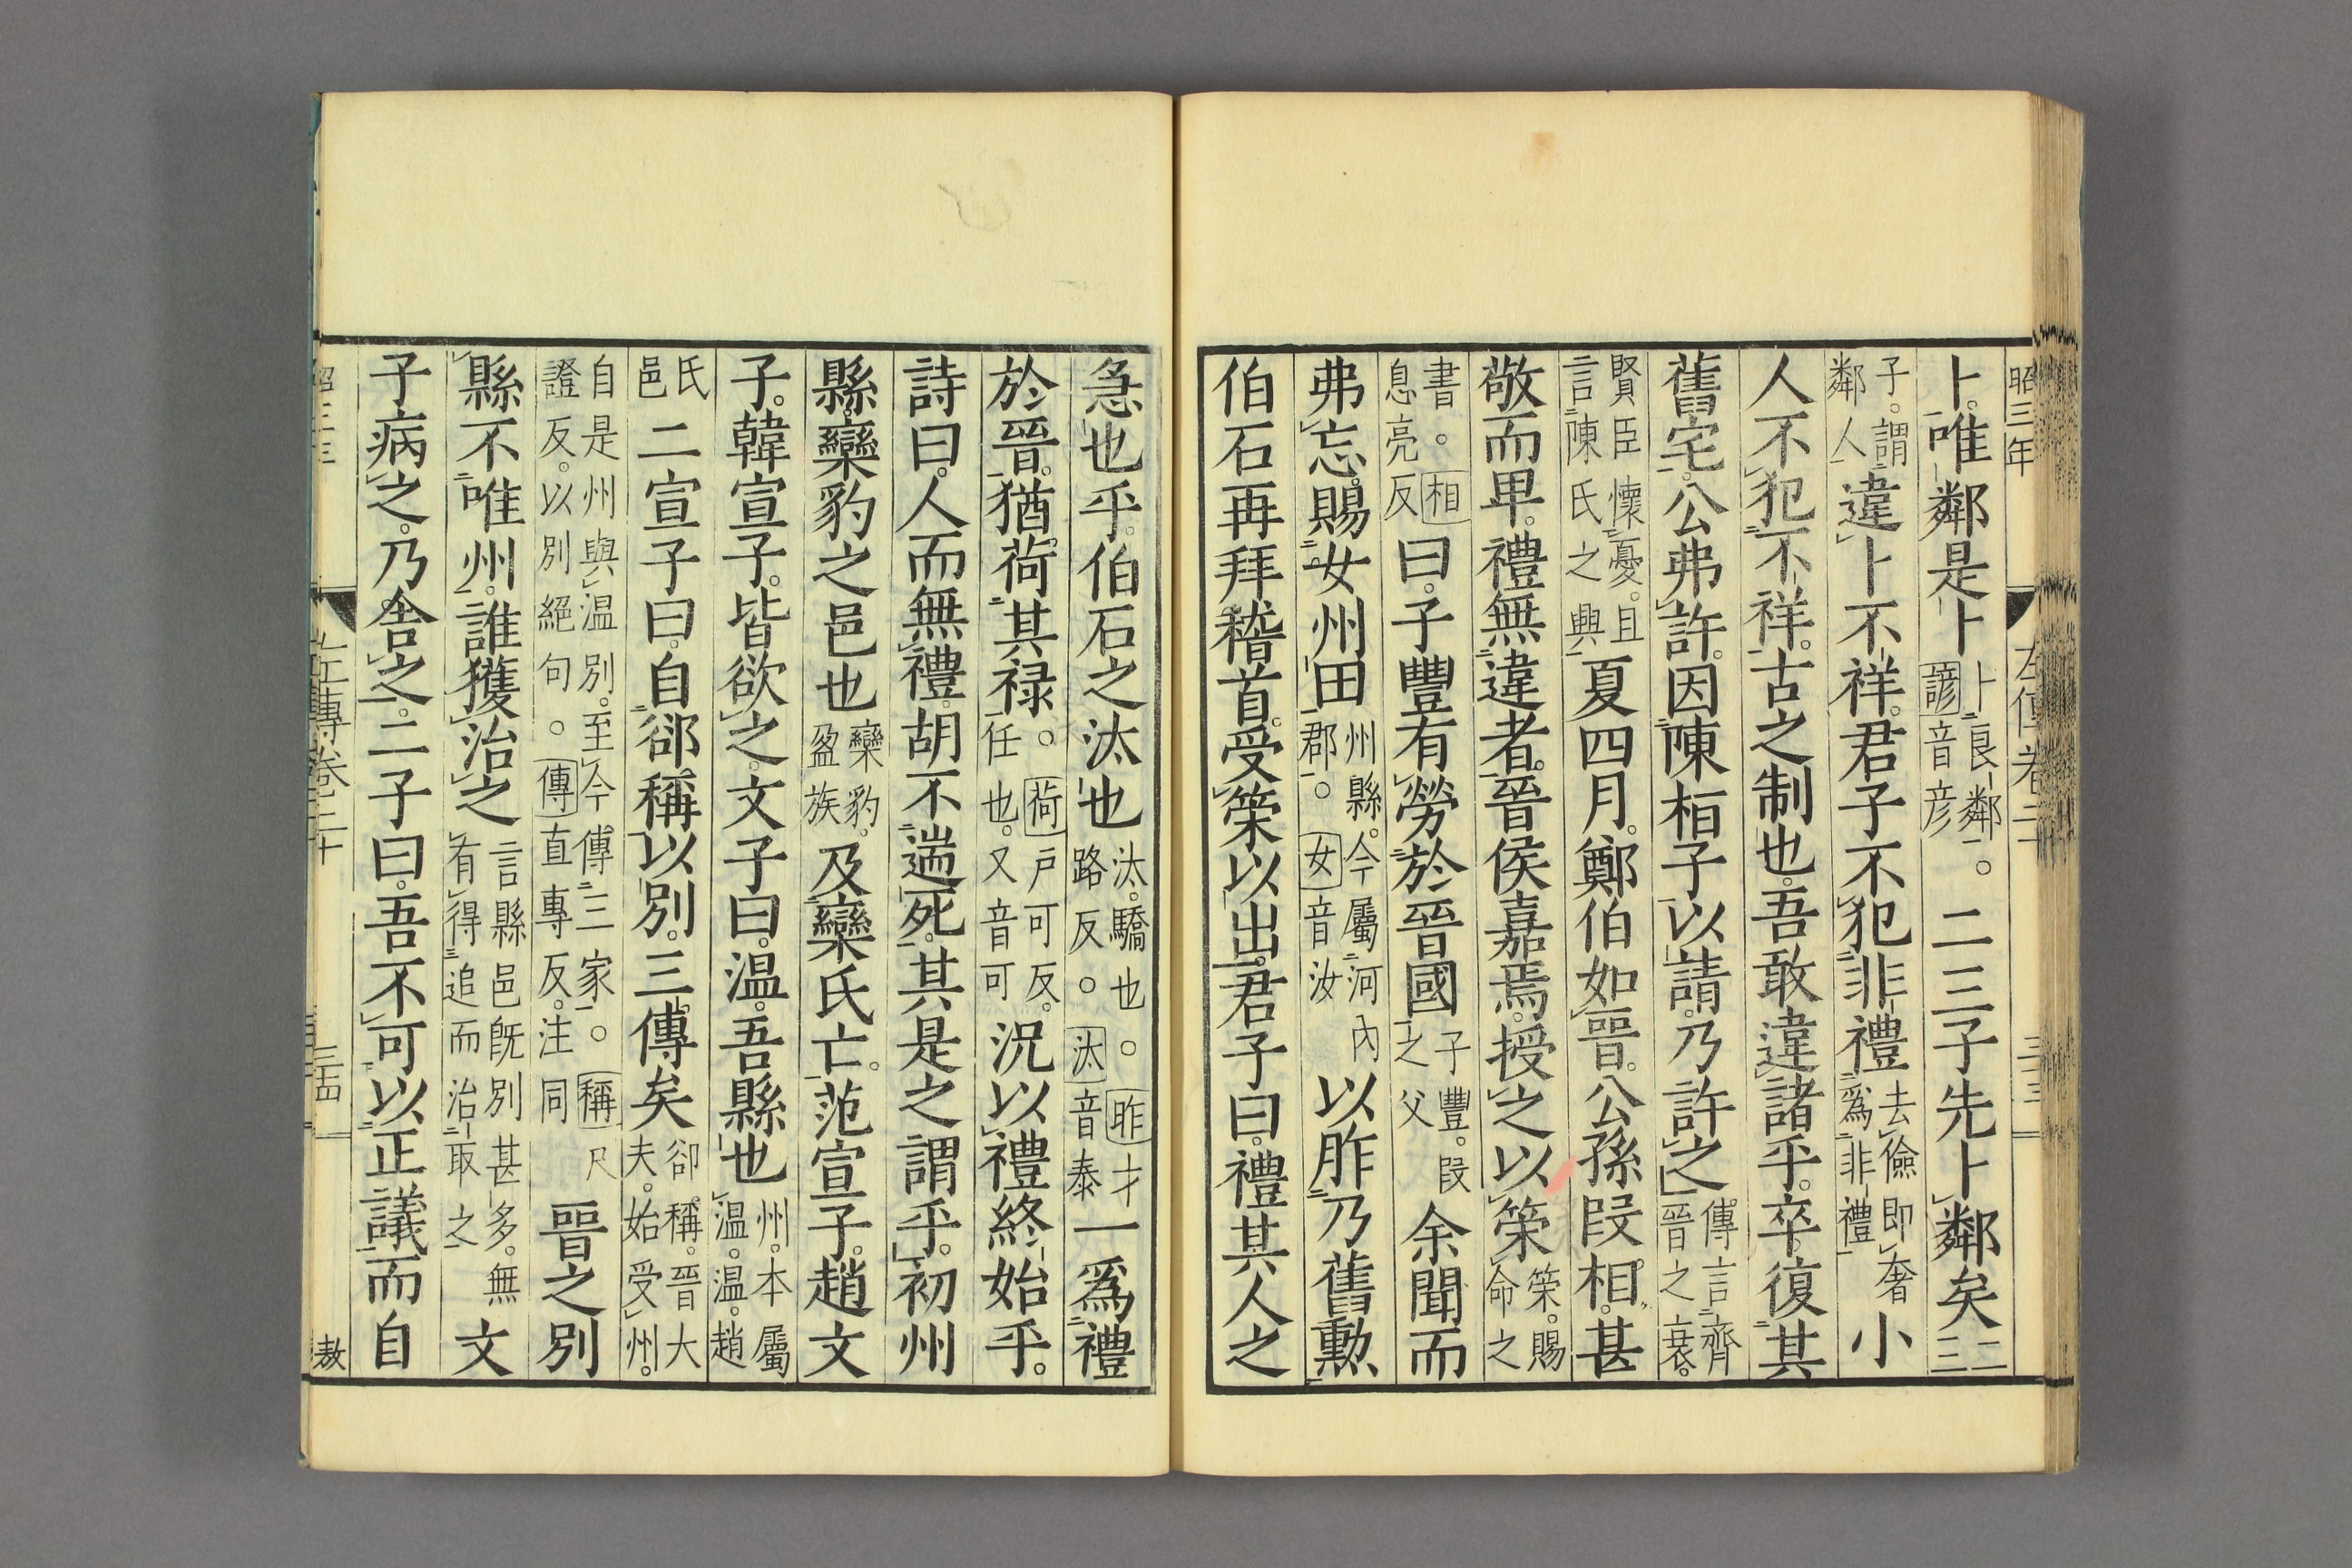 昭三年
左傳卷二十
三十三
卜。唯鄰是卜卜良鄰。諺音彥二三子先卜鄰矣二三
子。謂鄰人違卜不祥。君子不犯非禮去儉即奢爲非禮小
人不犯不祥。古之制也。吾敢違諸乎。卒復其
舊宅。公弗許。因陳桓子以請。乃許之傳言齊晉之衰。
賢臣懷憂。且言陳氏之興夏四月。鄭伯如晉。公孫段相。甚
敬而卑。禮無違者。晉侯嘉焉。授之以策策。賜命之
書。相息亮反曰。子豐有勞於晉國子豐。段之父余聞而
弗忘。賜女州田州縣。今屬河內郡。女音汝以胙乃舊勲
伯石再拜稽首。受策以出。君子曰。禮其人之
急也乎。伯石之汰也汰。驕也。胙才路反。汰音泰一爲禮
於晉。猶荷其禄。荷戶可反。任也。又音可況以禮終始乎。
詩曰。人而無禮。胡不遄死。其是之謂乎。初州
縣。欒豹之邑也欒豹。盈族及欒氏亡。范宣子。趙文
子。韓宣子。皆欲之。文子曰。温。吾縣也州。本屬温。温。趙
氏邑二宣子曰。自郤稱以別。三傳矣郤稱。晉大夫。始受州。
自是州與温別。至今傳三家。稱尺證反。以別絕句。傳直專反。注同晉之別
縣不唯州。誰獲治之言縣邑既別甚多。無有得追而治取之文
子病之。乃舍之。二子曰。吾不可以正議而自
昭三年
左傳卷二十
三十四
敖